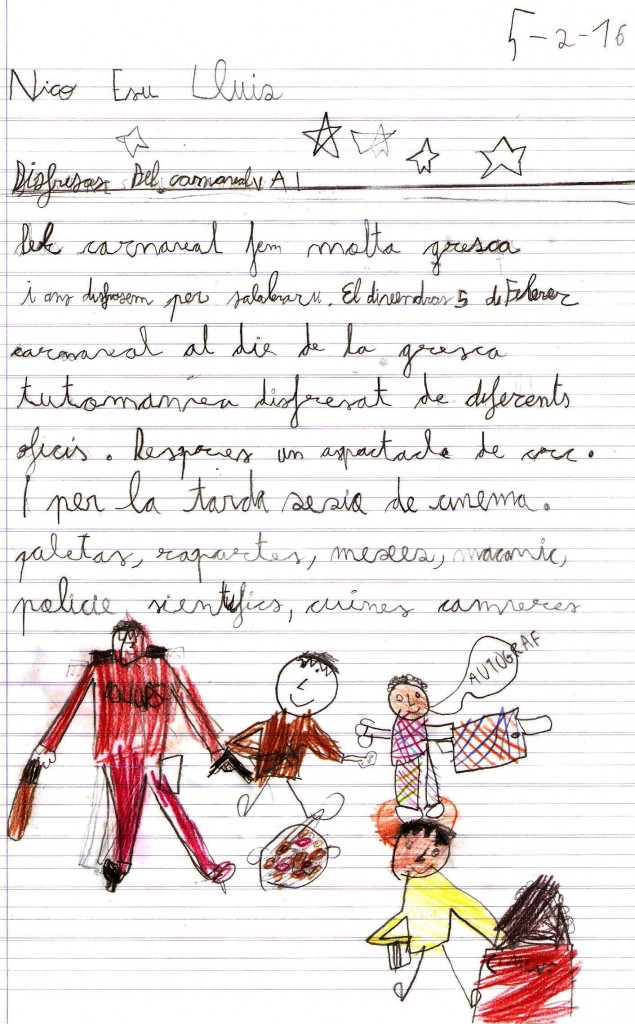 5-2-16
Nico Esu Lluis
Disfreses Del carnaval
carnaval fem molta gresca
i ens disfresem per salabraru. El divendras 5 de Febrer
carnaval al die de la gresca
tutomanréa disfresat de diferents
oficis. Despres un aspactacle de circ.
I per la tarda sesio de cinema.
paletas, rapartes, meses, macanic,
policie sientifics, cuines camreres
AUTOGRAF